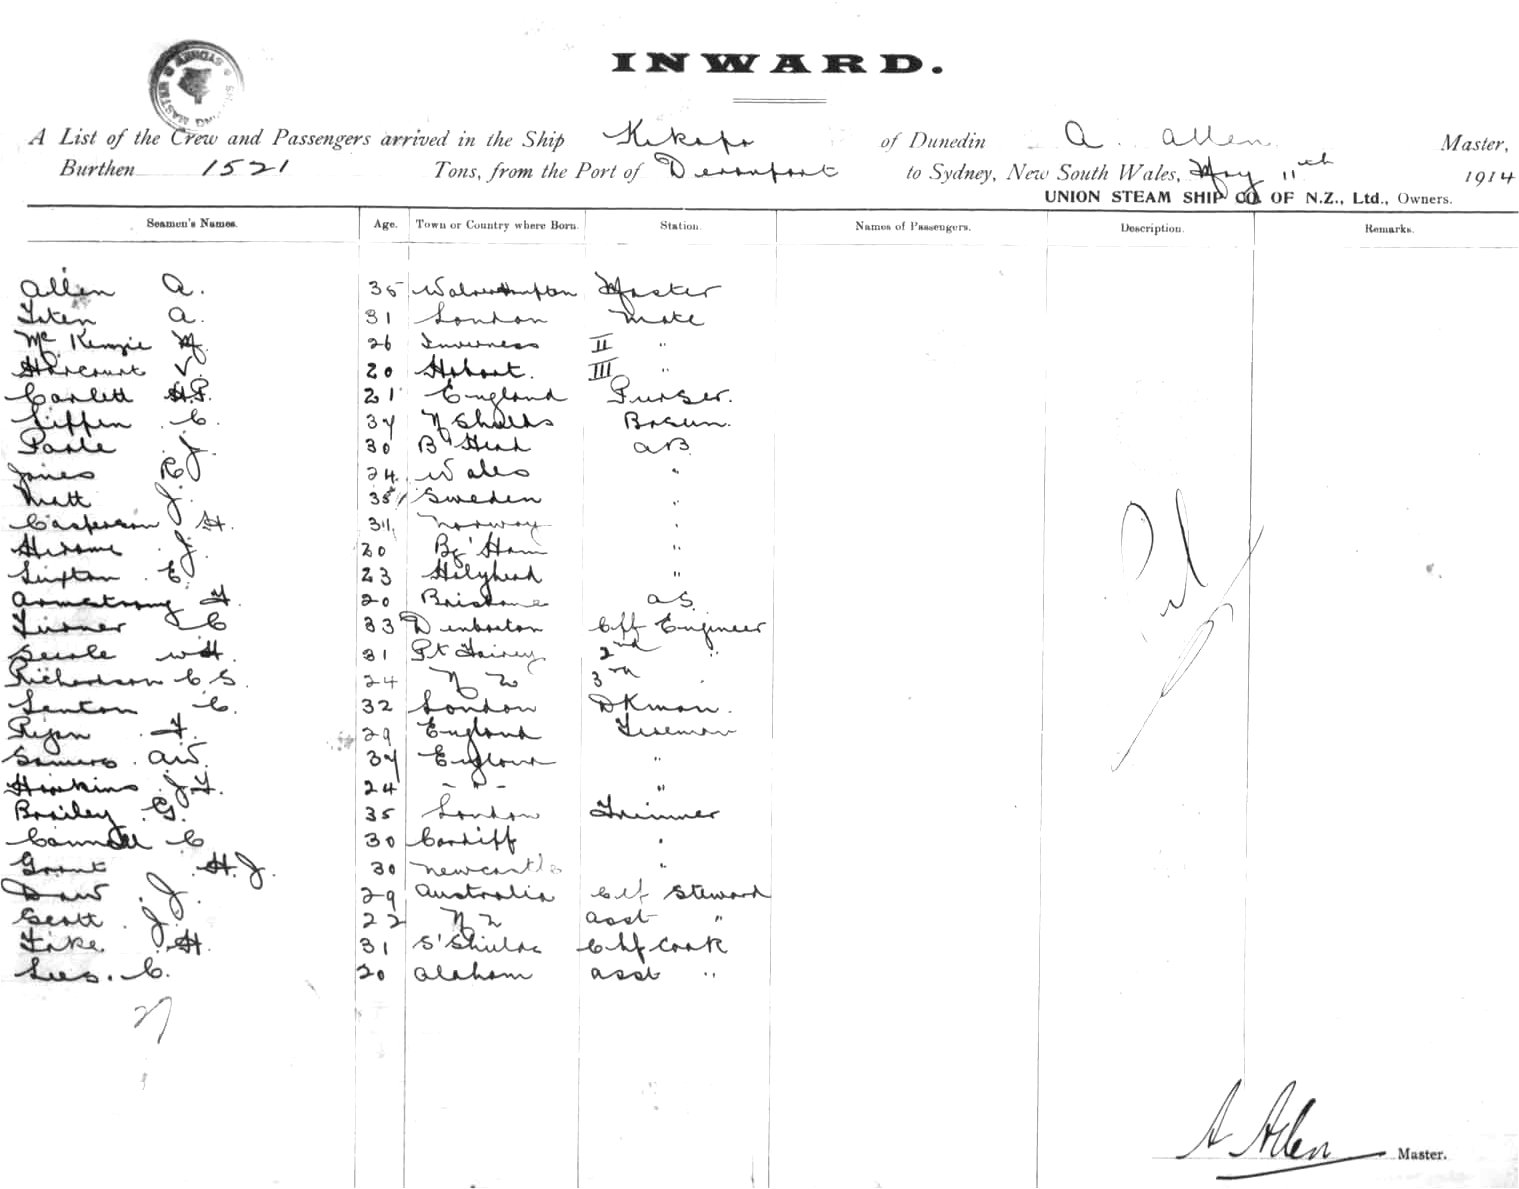 INWARD.
A List of the Crew and Passengers arrived in the Ship Kakapo of Dunedin A. Allen Master,
Burthen 1521 Tons, from the Port of Devonport to Sydney, New South Wales, May 11th 1914
UNION STEAM SHIP CO. OF N.Z., Ltd., Owners.
Seamen's Names. Age. Town or Country where Born. Station. Names of Passengers. Description. Remarks.
Allen A. 35 Wolverhampton Master
A. 31 London Mate
McKenzie M. 26 Inverness II "
Harcourt V. 20 Hobart. III "
H.P. 21 England Purser.
C. 34 N Shields Bosun.
J. 30 B'Head AB
Jones R J 24 Wales "
Matt J. 35 Sweden "
Casperson H. 34 Norway "
J. 20 Bg'Ham "
E. 23 Holyhead "
Armstrong F. 20 Brisbane O.S.
Turner C 33 Dumbarton Chf Engineer
Searle W H. 31 Pt Fairey 2nd "
Richardson C S. 24 N Z 3rd "
Lenton C. 32 London DKman.
Ryan F. 29 England Fireman
Somers A W. 34 England "
Hopkins J F. 24 - " - "
Brailey G. 35 London Trimmer
C 30 Cardiff "
Grant H. J. 30 Newcastle "
Daw J. 29 Australia Chf Steward
Scott J. 22 N Z Asst "
H. 31 S'Shields Chf Cook
Lees. C. 20 asst "
27
Nil
A Allen Master.